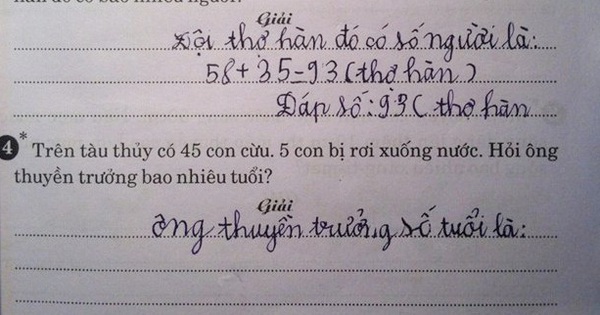 hàn đó có bao nhiêu người?
Giải
Đội thợ hàn đó có số người là:
58+35=93(thợ hàn)
Đáp số:93( thợ hàn
4* Trên tàu thủy có 45 con cừu. 5 con bị rơi xuống nước. Hỏi ông
thuyền trưởng bao nhiêu tuổi?
Giải
ông thuyền trưởng số tuổi là: